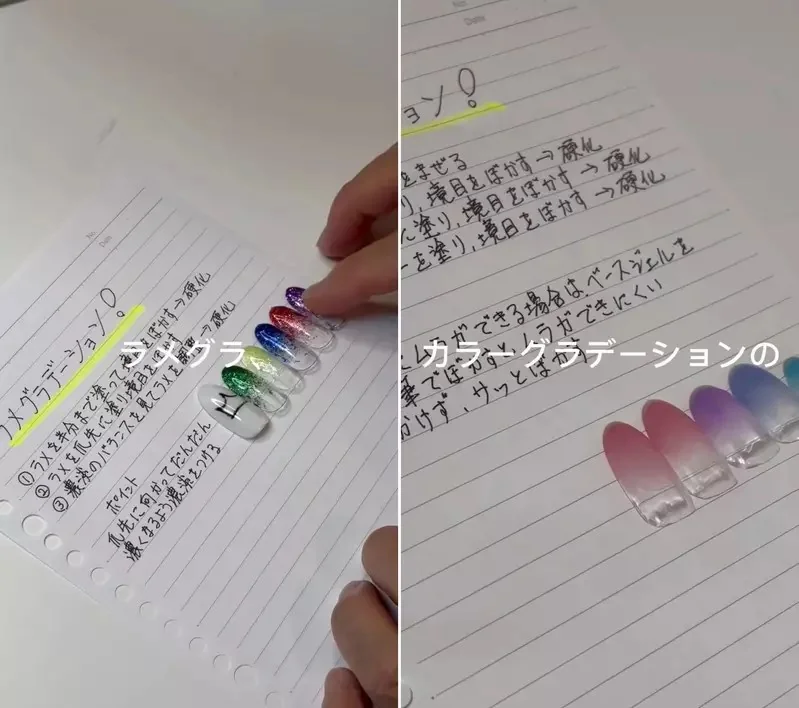 No.
Date
ラメグラデーション!
①ラメを半分まで塗って境目をぼかす→硬化
②ラメを爪先に塗り境目をぼかす
③濃淡のバランスを見てラメを →硬化
ポイント
爪先に向かってだんだん
濃くなるよう濃淡をつける
ラメグラ
No.
Date
ョン!
をまぜる
り,境目をぼかす→硬化
に塗り,境目をぼかす→硬化
ーを塗り,境目をぼかす→硬化
ムラができる場合はベースジェルを
筆でぼかすと、ムラができにくい
かけず、サッとぼかす
カラーグラデーションの